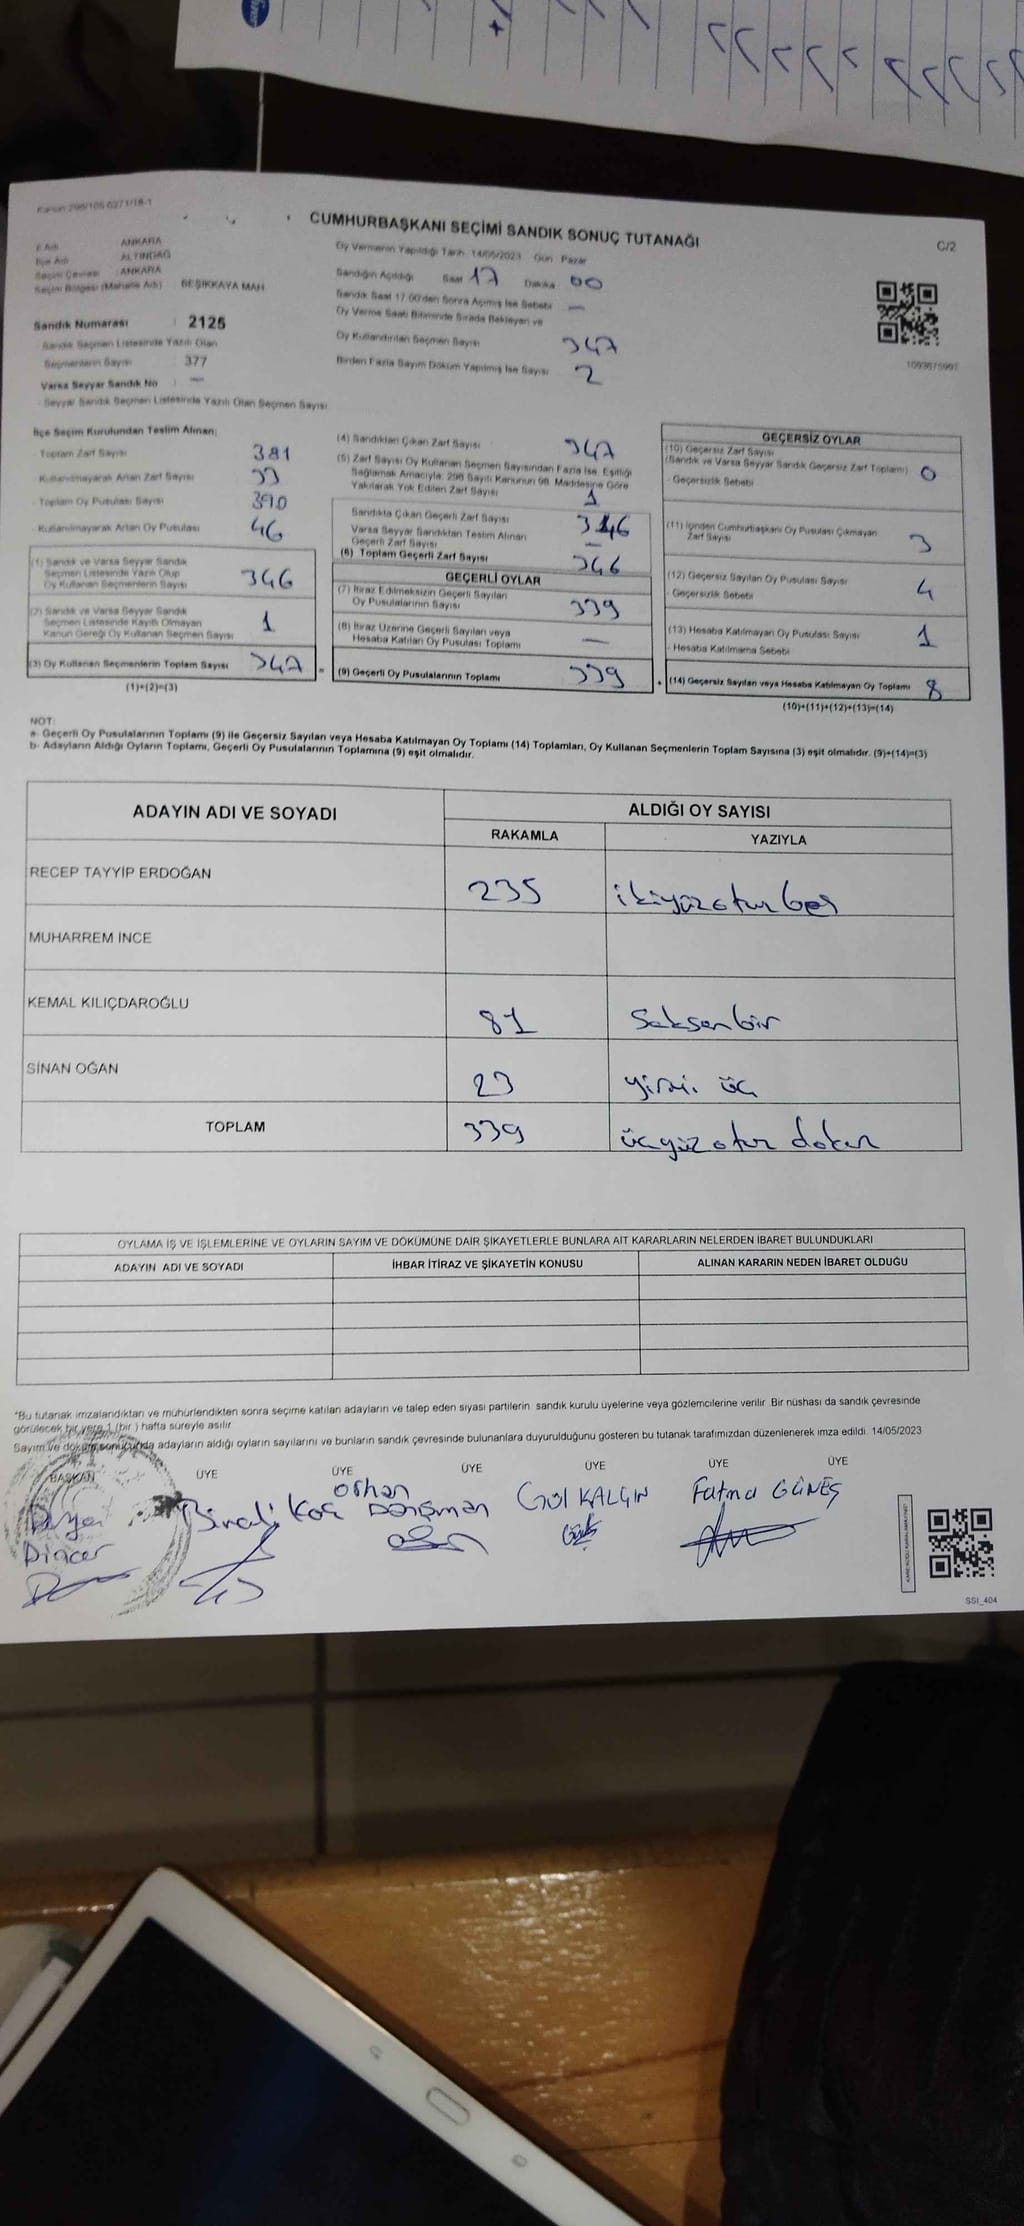 Kanun 298/105 6271/18-1
CUMHURBAŞKANI SEÇİMİ SANDIK SONUÇ TUTANAĞI
C/2
İl Adı ANKARA
İlçe Adı ALTINDAĞ
Seçim Çevresi : ANKARA
Seçim Bölgesi (Mahalle Adı) BEŞİKKAYA MAH
Sandık Numarası : 2125
Sandık Seçmen Listesinde Yazılı Olan
Seçmenlerin Sayısı : 377
Varsa Seyyar Sandık No : —
Seyyar Sandık Seçmen Listesinde Yazılı Olan Seçmen Sayısı
Oy Vermenin Yapıldığı Tarih 14/05/2023 Gün Pazar
Sandığın Açıldığı Saat 17 Dakika 00
Sandık Saat 17:00'den Sonra Açılmış İse Sebebi —
Oy Verme Saati Bitiminde Sırada Bekleyen ve
Oy Kullandırılan Seçmen Sayısı 347
Birden Fazla Sayım Döküm Yapılmış İse Sayısı 2
İlçe Seçim Kurulundan Teslim Alınan;
Toplam Zarf Sayısı 381
Kullanılmayarak Artan Zarf Sayısı 33
Toplam Oy Pusulası Sayısı 390
Kullanılmayarak Artan Oy Pusulası 46
(1) Sandık ve Varsa Seyyar Sandık
Seçmen Listesinde Yazılı Olup
Oy Kullanan Seçmenlerin Sayısı 346
(2) Sandık ve Varsa Seyyar Sandık
Seçmen Listesinde Kayıtlı Olmayan
Kanun Gereği Oy Kullanan Seçmen Sayısı 1
(3) Oy Kullanan Seçmenlerin Toplam Sayısı 347 =
(1)+(2)=(3)
(4) Sandıktan Çıkan Zarf Sayısı 347
(5) Zarf Sayısı Oy Kullanan Seçmen Sayısından Fazla İse, Eşitliği
Sağlamak Amacıyla; 298 Sayılı Kanunun 98. Maddesine Göre
Yakılarak Yok Edilen Zarf Sayısı 1
Sandıkta Çıkan Geçerli Zarf Sayısı 346
Varsa Seyyar Sandıktan Teslim Alınan
Geçerli Zarf Sayısı —
(6) Toplam Geçerli Zarf Sayısı 346
GEÇERLİ OYLAR
(7) İtiraz Edilmeksizin Geçerli Sayılan
Oy Pusulalarının Sayısı 339
(8) İtiraz Üzerine Geçerli Sayılan veya
Hesaba Katılan Oy Pusulası Toplamı —
(9) Geçerli Oy Pusulalarının Toplamı 339 +
GEÇERSİZ OYLAR
(10) Geçersiz Zarf Sayısı
(Sandık ve Varsa Seyyar Sandık Geçersiz Zarf Toplamı) 0
Geçersizlik Sebebi
(11) İçinden Cumhurbaşkanı Oy Pusulası Çıkmayan
Zarf Sayısı 3
(12) Geçersiz Sayılan Oy Pusulası Sayısı 4
- Geçersizlik Sebebi
(13) Hesaba Katılmayan Oy Pusulası Sayısı 1
- Hesaba Katılmama Sebebi
(14) Geçersiz Sayılan veya Hesaba Katılmayan Oy Toplamı 8
(10)+(11)+(12)+(13)=(14)
NOT:
a- Geçerli Oy Pusulalarının Toplamı (9) ile Geçersiz Sayılan veya Hesaba Katılmayan Oy Toplamı (14) Toplamları, Oy Kullanan Seçmenlerin Toplam Sayısına (3) eşit olmalıdır. (9)+(14)=(3)
b- Adayların Aldığı Oyların Toplamı, Geçerli Oy Pusulalarının Toplamına (9) eşit olmalıdır.
ADAYIN ADI VE SOYADI ALDIĞI OY SAYISI
RAKAMLA YAZIYLA
RECEP TAYYİP ERDOĞAN 235 ikiyüzotuz beş
MUHARREM İNCE
KEMAL KILIÇDAROĞLU 81 Seksen bir
SİNAN OĞAN 23 yirmi üç
TOPLAM 339 üçyüz otuz dokuz
OYLAMA İŞ VE İŞLEMLERİNE VE OYLARIN SAYIM VE DÖKÜMÜNE DAİR ŞİKAYETLERLE BUNLARA AİT KARARLARIN NELERDEN İBARET BULUNDUKLARI
ADAYIN ADI VE SOYADI İHBAR İTİRAZ VE ŞİKAYETİN KONUSU ALINAN KARARIN NEDEN İBARET OLDUĞU
*Bu tutanak imzalandıktan ve mühürlendikten sonra seçime katılan adayların ve talep eden siyasi partilerin sandık kurulu üyelerine veya gözlemcilerine verilir. Bir nüshası da sandık çevresinde
görülecek bir yere 1 (bir ) hafta süreyle asılır.
Sayım ve döküm sonucunda adayların aldığı oyların sayılarını ve bunların sandık çevresinde bulunanlara duyurulduğunu gösteren bu tutanak tarafımızdan düzenlenerek imza edildi. 14/05/2023
BAŞKAN ÜYE ÜYE ÜYE ÜYE ÜYE ÜYE
Derya Dincer
Binali Koç
Orhan Danışman
Gül KALÇIN
Fatma GÜNEŞ
SSI_404